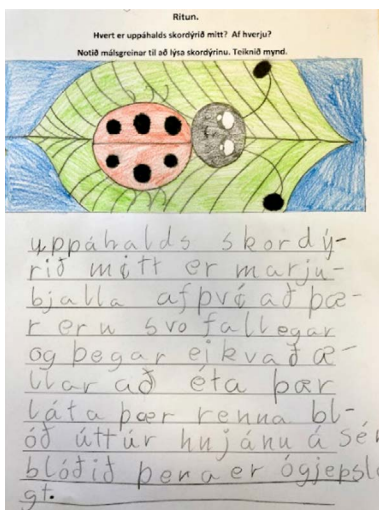 Ritun.
Hvert er uppáhalds skordýrið mitt? Af hverju?
Notið málsgreinar til að lýsa skordýrinu. Teiknið mynd.
uppáhalds skordý-
rið mitt er marju-
bjalla afþví að þæ-
r eru svo fallegar
og þegar eikvað æ-
llar að éta þær
láta þær renna bl-
óð úttúr hnjánu á sér
blóðið þena er ógjepsle
gt.